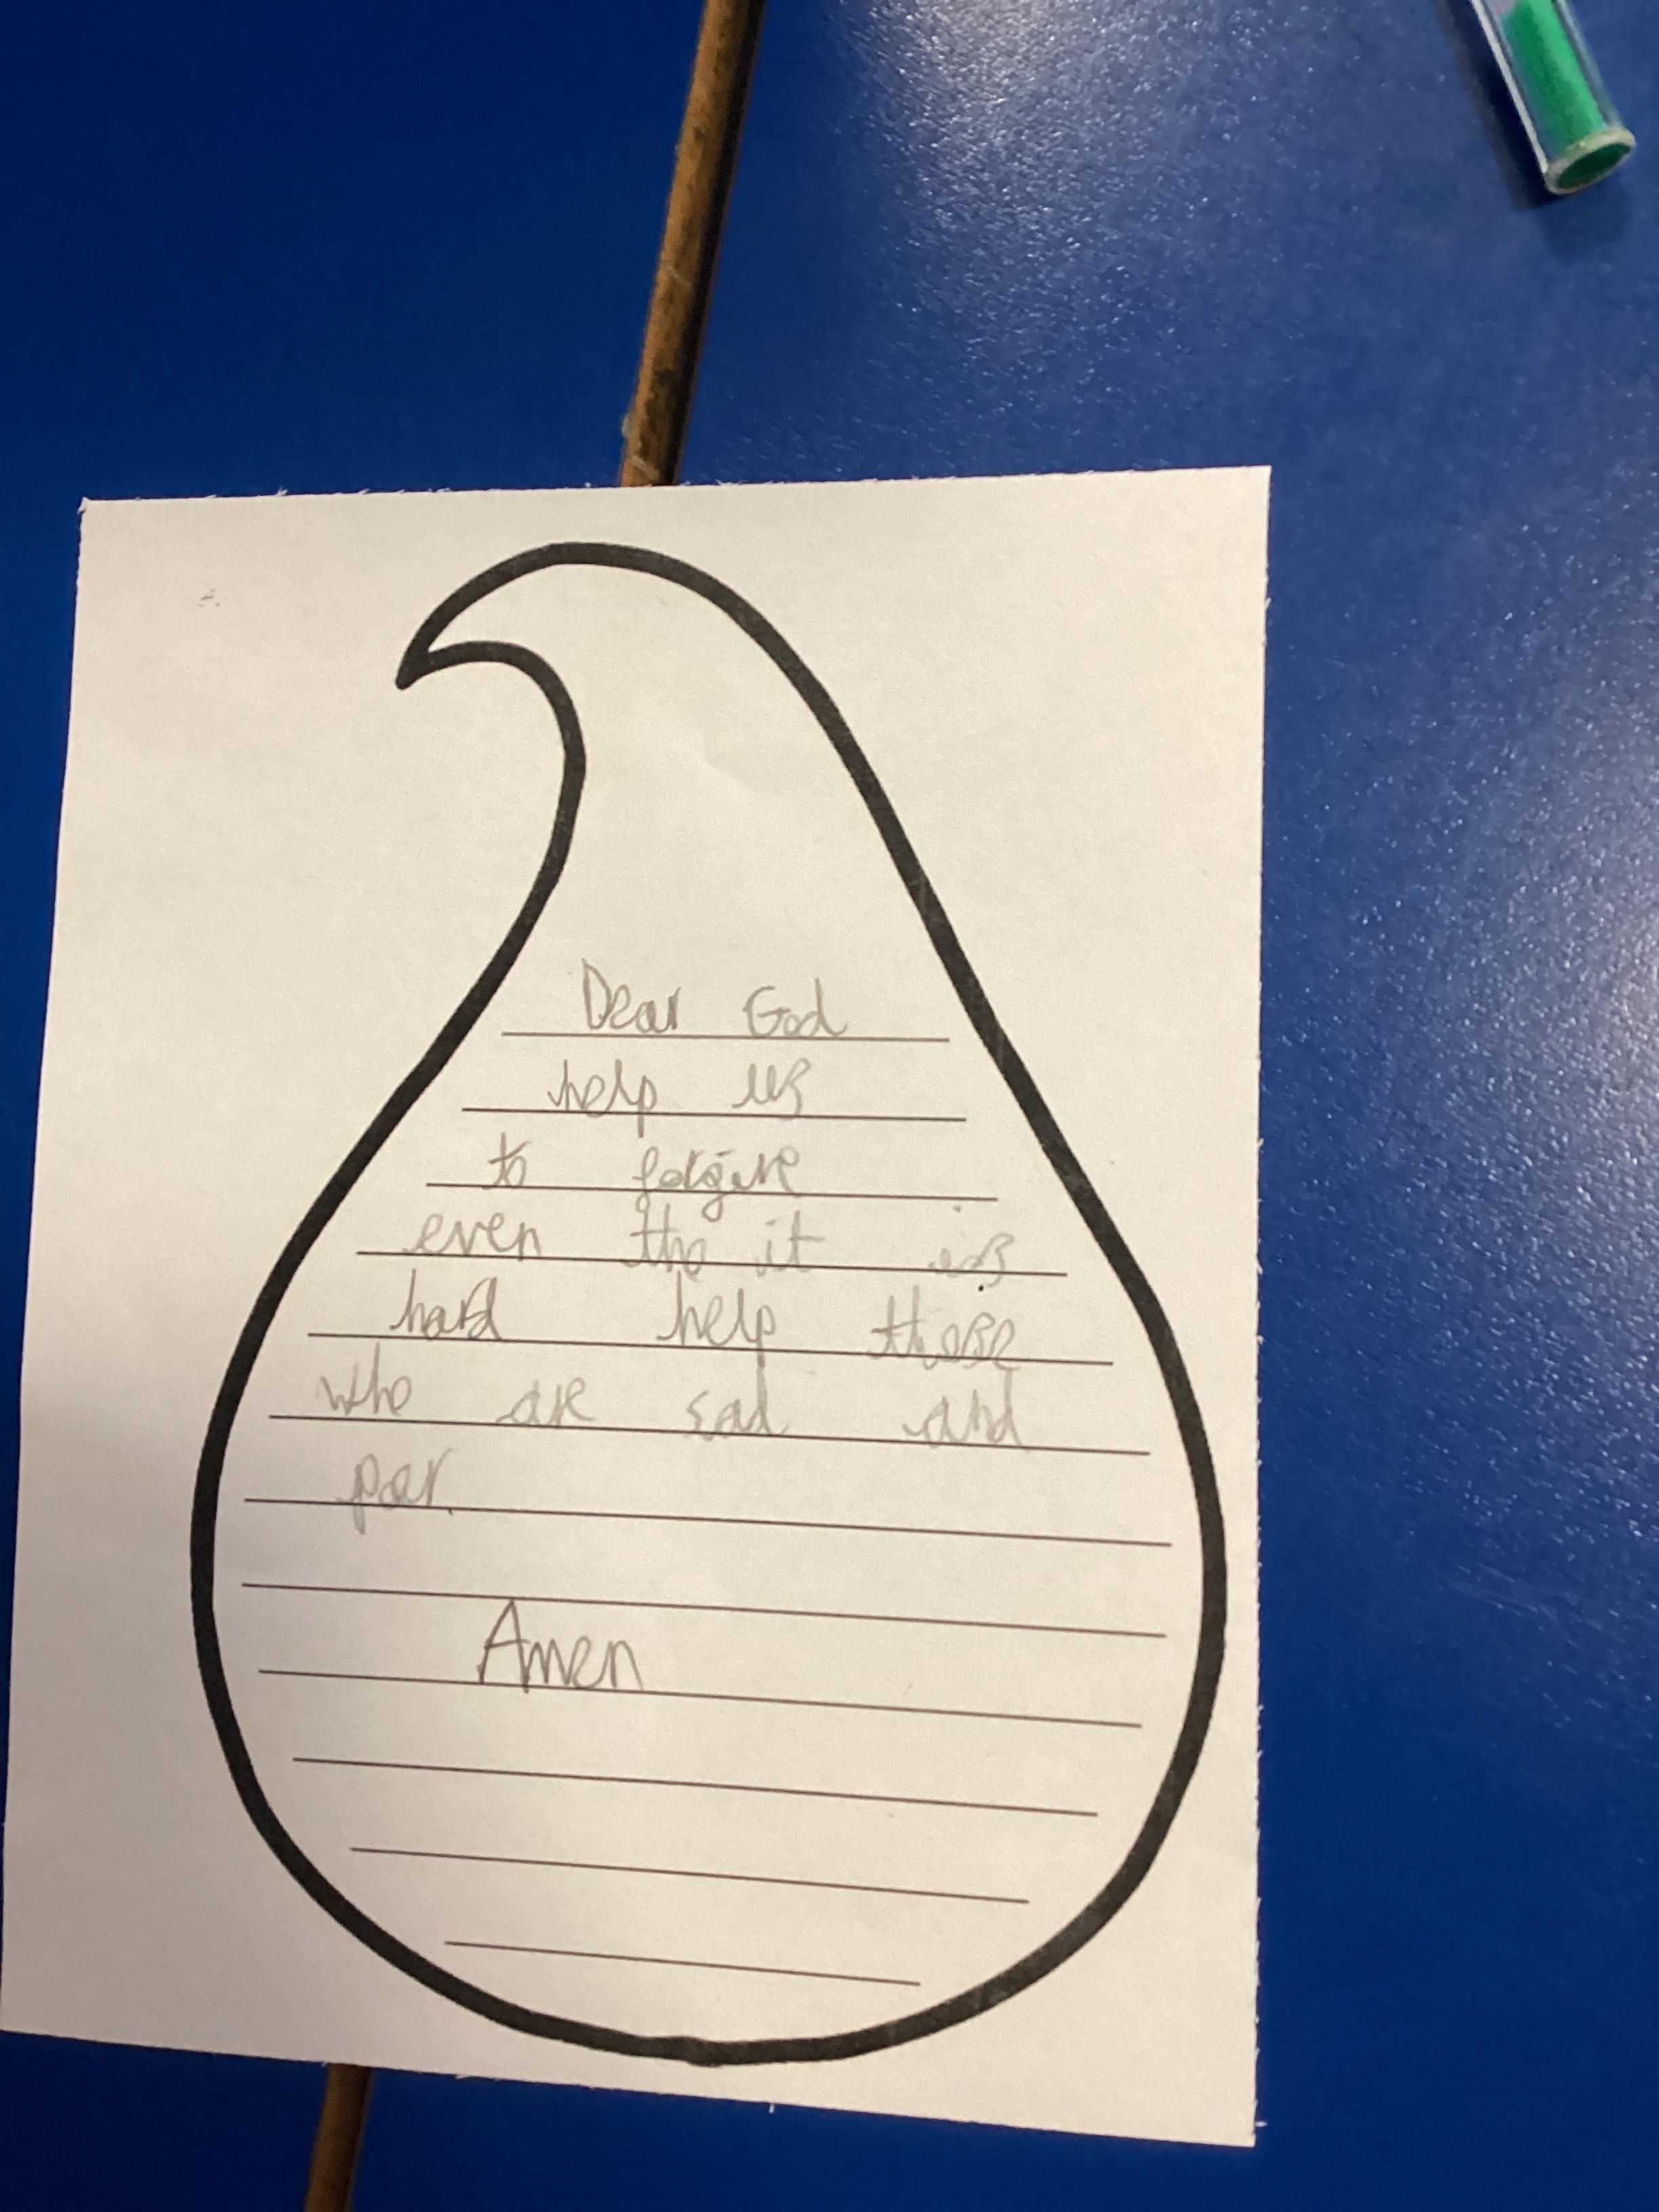 Dear God
help us
to forgive
even tho it is
hard help those
who are sad and
por.
Amen